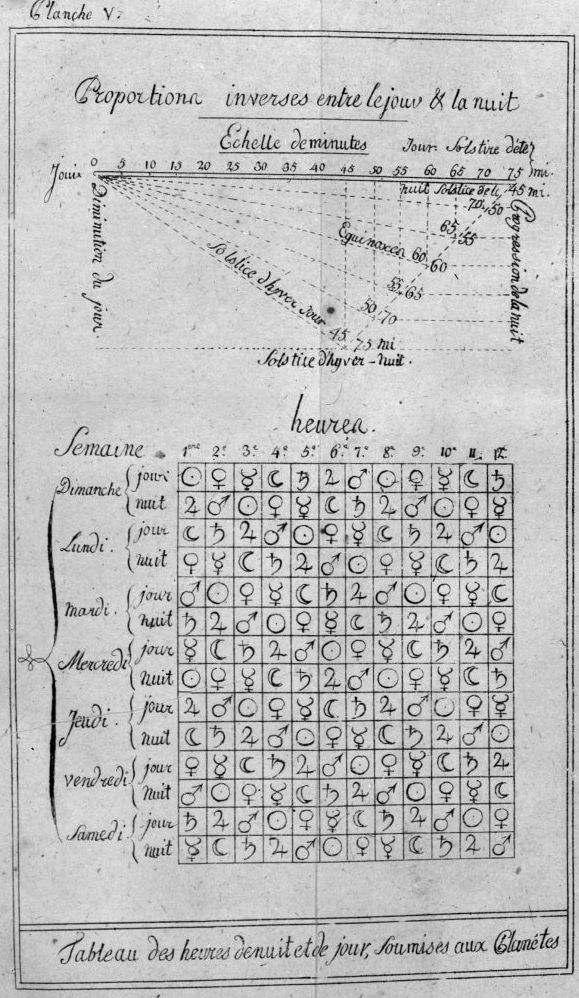 Planche V.
Proportions inverses entre le jour & la nuit
Echelle de minutes
Jour Solstice d'été
Jour 0 5 10 15 20 25 30 35 40 45 50 55 60 65 70 75 mi.
nuit Solstice de 45 mi.
70 50
65 55
Equinoxes 60 60
55 65
50 70
45 75 mi
Diminution du jour
Solstice d'hyver jour
Progression de la nuit
Solstice d'hyver - nuit.
heures.
Semaine 1ere 2e 3e 4e 5e 6e 7e 8e 9e 10e 11. 12.
Dimanche jour ☉ ♀ ☿ ☾ ♄ ♃ ♂ ☉ ♀ ☿ ☾ ♄
nuit ♃ ♂ ☉ ♀ ☿ ☾ ♄ ♃ ♂ ☉ ♀ ☿
Lundi. jour ☾ ♄ ♃ ♂ ☉ ♀ ☿ ☾ ♄ ♃ ♂ ☉
nuit ♀ ☿ ☾ ♄ ♃ ♂ ☉ ♀ ☿ ☾ ♄ ♃
Mardi. jour ♂ ☉ ♀ ☿ ☾ ♄ ♃ ♂ ☉ ♀ ☿ ☾
nuit ♄ ♃ ♂ ☉ ♀ ☿ ☾ ♄ ♃ ♂ ☉ ♀
Mercredi jour ☿ ☾ ♄ ♃ ♂ ☉ ♀ ☿ ☾ ♄ ♃ ♂
nuit ☉ ♀ ☿ ☾ ♄ ♃ ♂ ☉ ♀ ☿ ☾ ♄
Jeudi. jour ♃ ♂ ☉ ♀ ☿ ☾ ♄ ♃ ♂ ☉ ♀ ☿
nuit ☾ ♄ ♃ ♂ ☉ ♀ ☿ ☾ ♄ ♃ ♂ ☉
vendredi jour ♀ ☿ ☾ ♄ ♃ ♂ ☉ ♀ ☿ ☾ ♄ ♃
nuit ♂ ☉ ♀ ☿ ☾ ♄ ♃ ♂ ☉ ♀ ☿ ☾
Samedi. jour ♄ ♃ ♂ ☉ ♀ ☿ ☾ ♄ ♃ ♂ ☉ ♀
nuit ☿ ☾ ♄ ♃ ♂ ☉ ♀ ☿ ☾ ♄ ♃ ♂
Tableau des heures de nuit et de jour, soumises aux Planétes